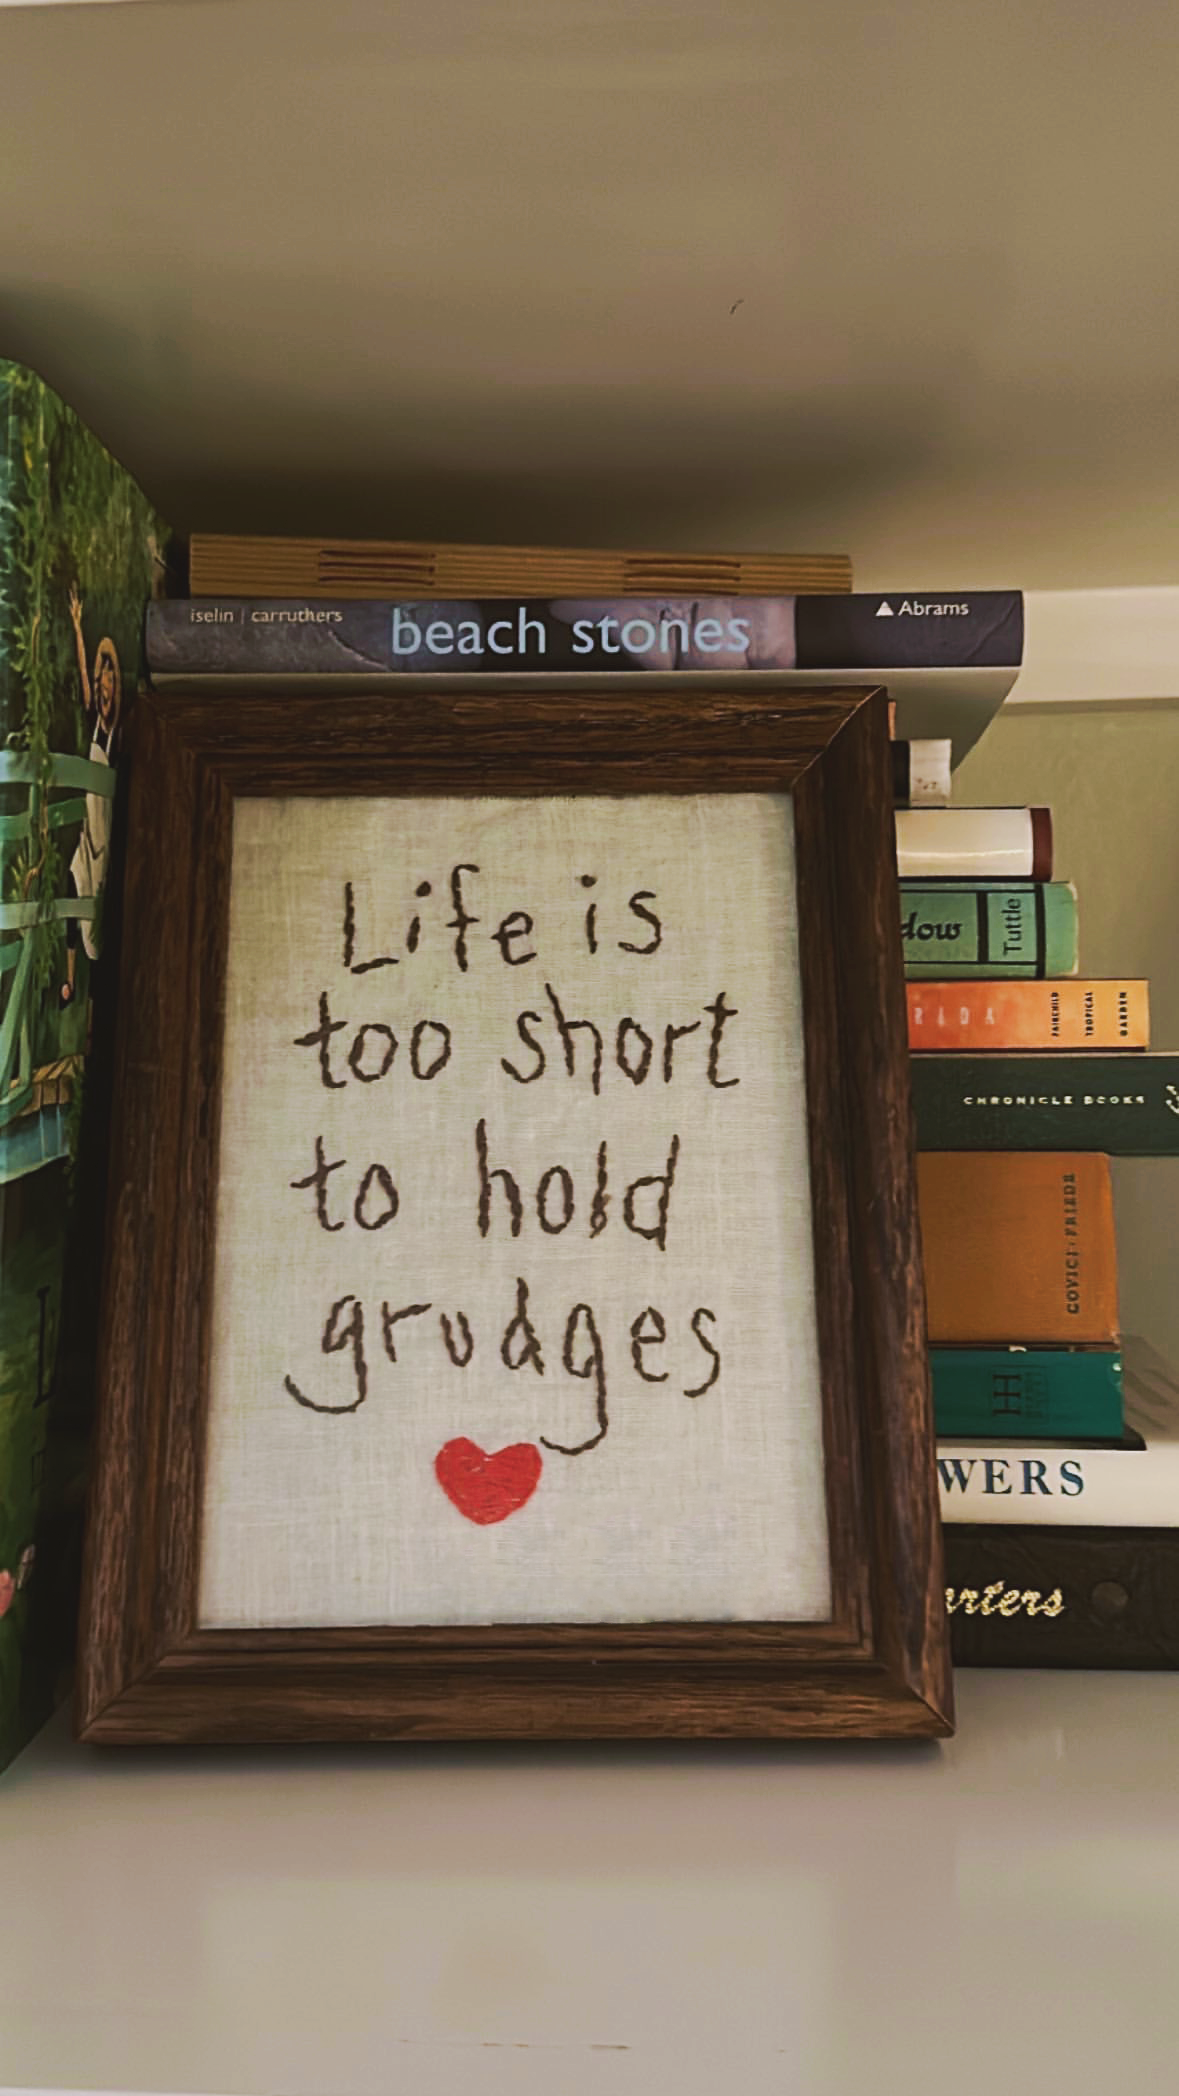 iselin | carruthers beach stones Abrams
Life is
too short
to hold
grudges
dow Tuttle
RADA FAIRCHILD TROPICAL GARDEN
CHRONICLE BOOKS
COVICI · FRIEDE
H
WERS
arters